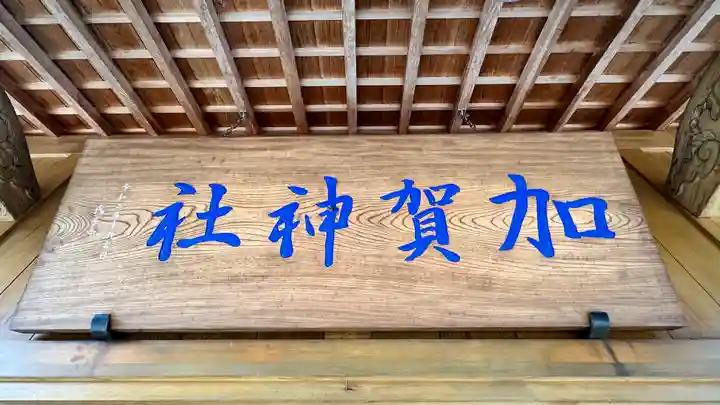 加賀神社